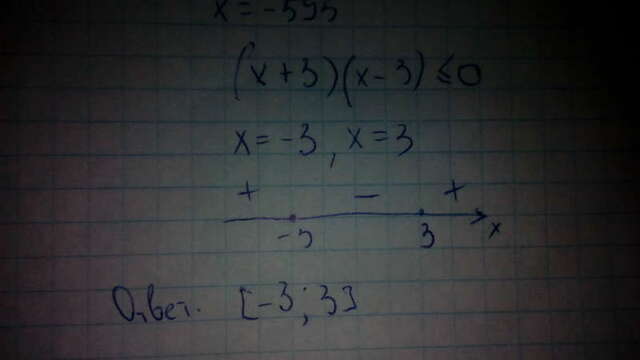 x = -593
(x+3)(x-3) ≤ 0
x = -3, x = 3
+ − +
-3 3 x
Ответ. [-3; 3]